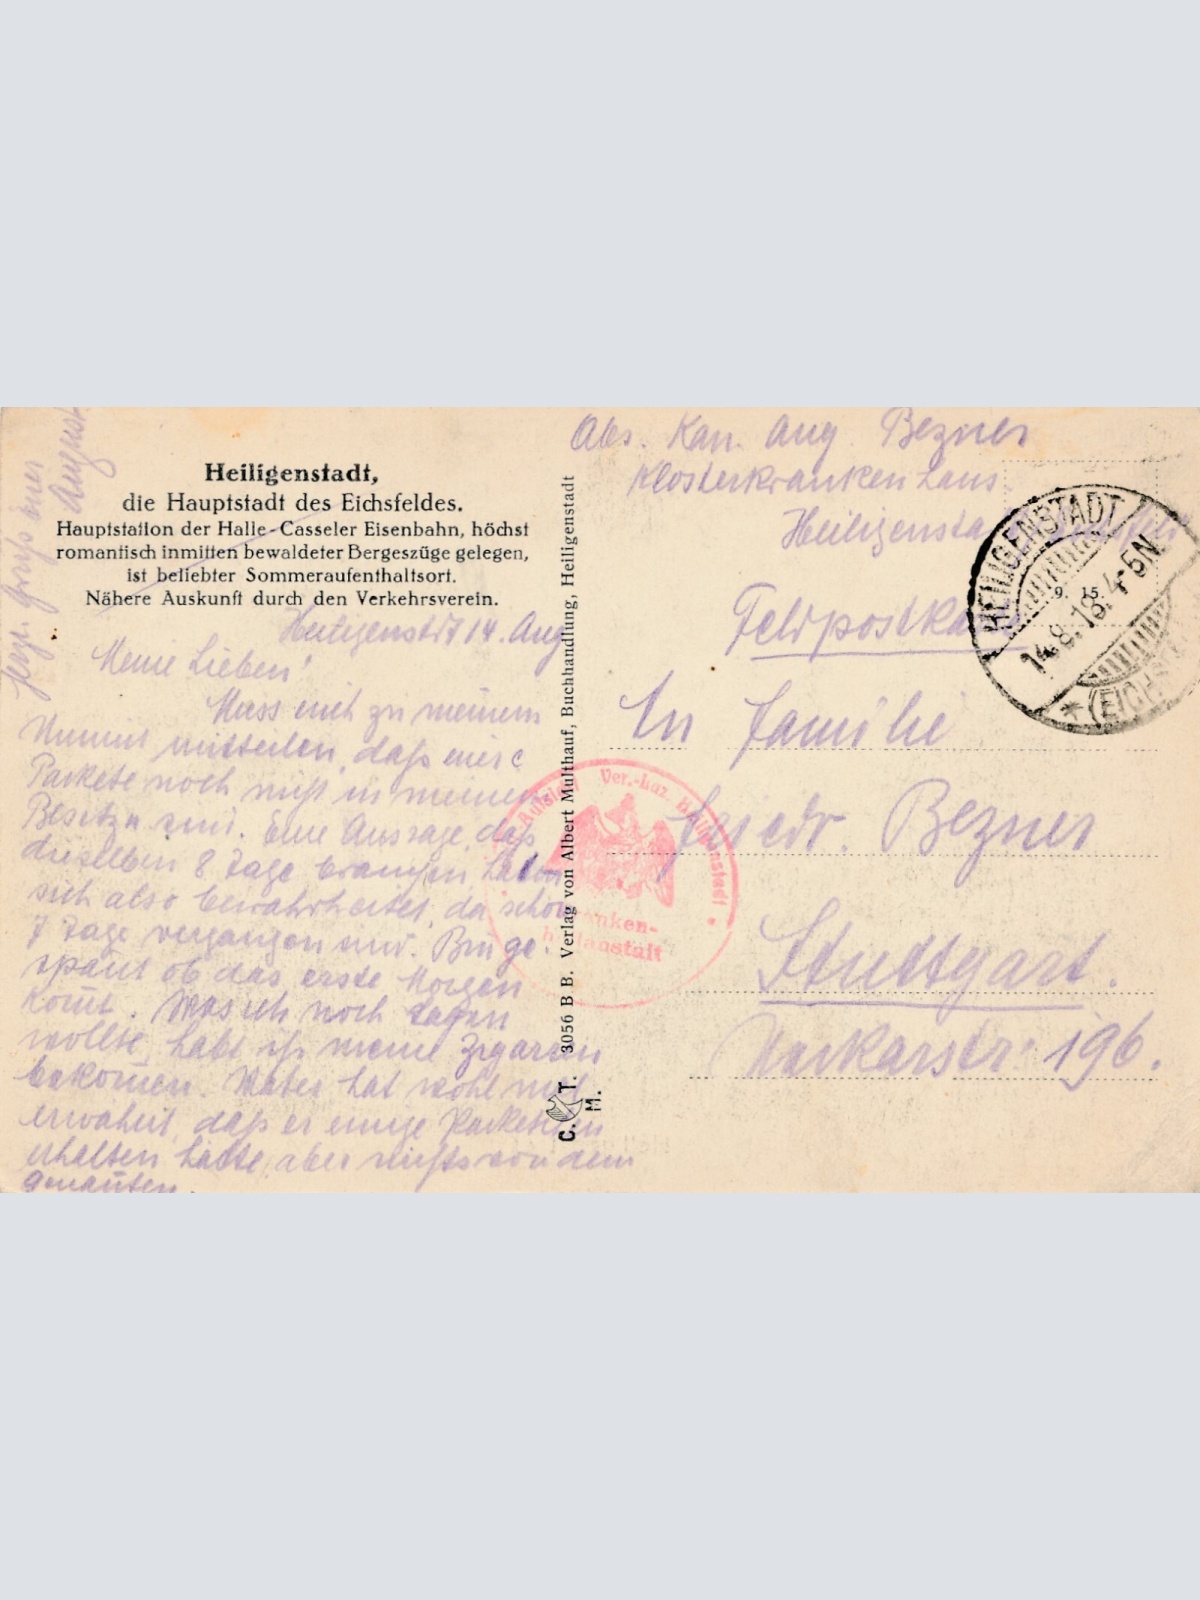 Heiligenstadt,
die Hauptstadt des Eichsfeldes.
Hauptstation der Halle-Casseler Eisenbahn, höchst
romantisch inmitten bewaldeter Bergeszüge gelegen,
ist beliebter Sommeraufenthaltsort.
Nähere Auskunft durch den Verkehrsverein.
Heiligenstdt 14. Aug
Meine Lieben!
Muss euch zu meinem
mitteilen, daß eure
Pakete noch nicht in meinem
Besitze sind. Eine Aussage, daß
dieselben 8 Tage brauchen, haben
sich also bewahrheitet, da schon
7 Tage vergangen sind. Bin ge-
spant ob das erste Morgen
komt. Was ich noch sagen
wollte, habe ich meine Zigarren
bekomen. Vater hat wohl mal
erwähnt, daß er einige Paketchen
erhalten hätte, aber nichts von dem
genanten.
Herzl. Gruß euer
August
Abs. Kan. Aug. Bezner
Klosterkrankenhaus
Heiligenstadt
Feldpostkarte
An Familie
Friedr. Bezner
Stuttgart.
Neckarstr. 196.
HEILIGENSTADT
14.8.18. 4-5N
* (EICHSF
9. 15.
Ver.-Laz. Heiligenstadt
Kranken-
heilanstalt
C. T. 3056 B B. Verlag von Albert Multhauf, Buchhandlung, Heiligenstadt
M.